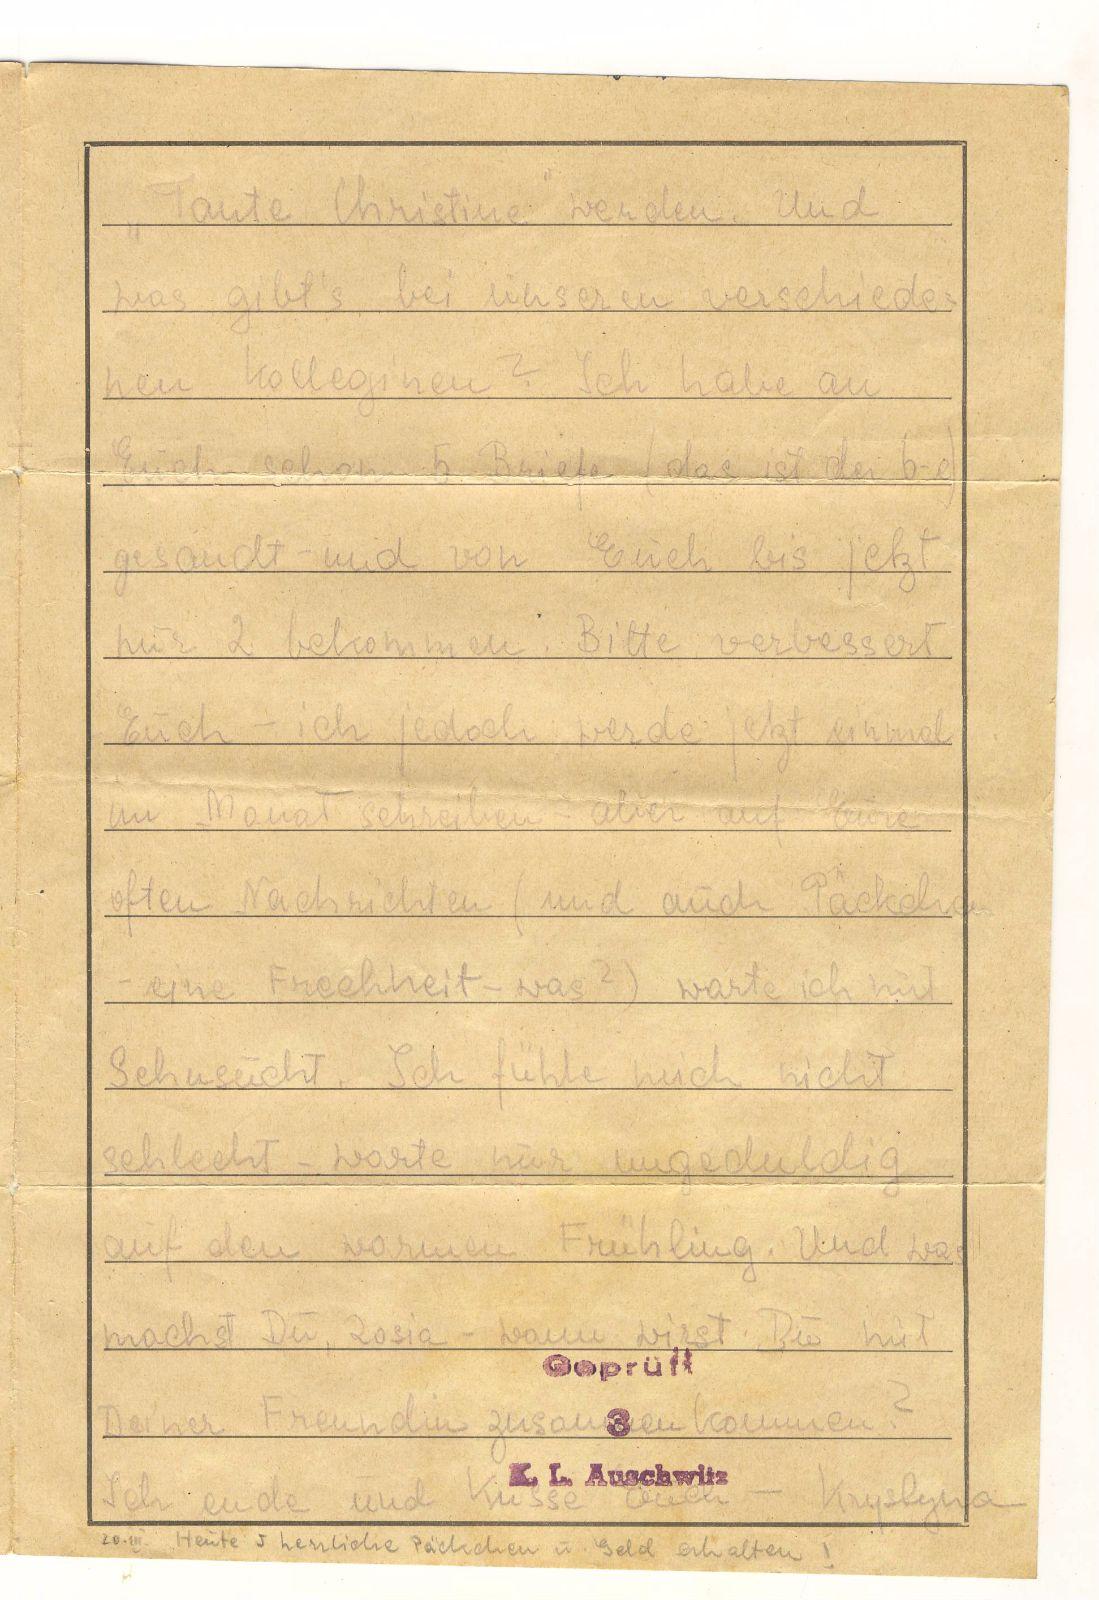 „Tante Christine” werden. Und
was gibt's bei unseren verschiede-
nen Kolleginen? Ich habe an
Euch schon 5 Briefe (das ist der 6-e)
gesandt – und von Euch bis jetzt
nur 2 bekommen. Bitte verbessert
Euch – ich jedoch werde jetzt einmal
im Monat schreiben – aber auf Eure
often Nachrichten (und auch Päckchen
– eine Frechheit – was?) warte ich mit
Sehnsucht. Ich fühle mich nicht
schlecht – warte nur ungeduldig
auf den warmen Frühling. Und was
machst Du, Zosia – wann wirst Du mit
Geprüft
Deiner Freundin zusammenkommen?
3
K. L. Auschwitz
Ich ende und Küsse Euch – Krystyna
20.III. Heute 5 herrliche Päckchen u. Geld erhalten!